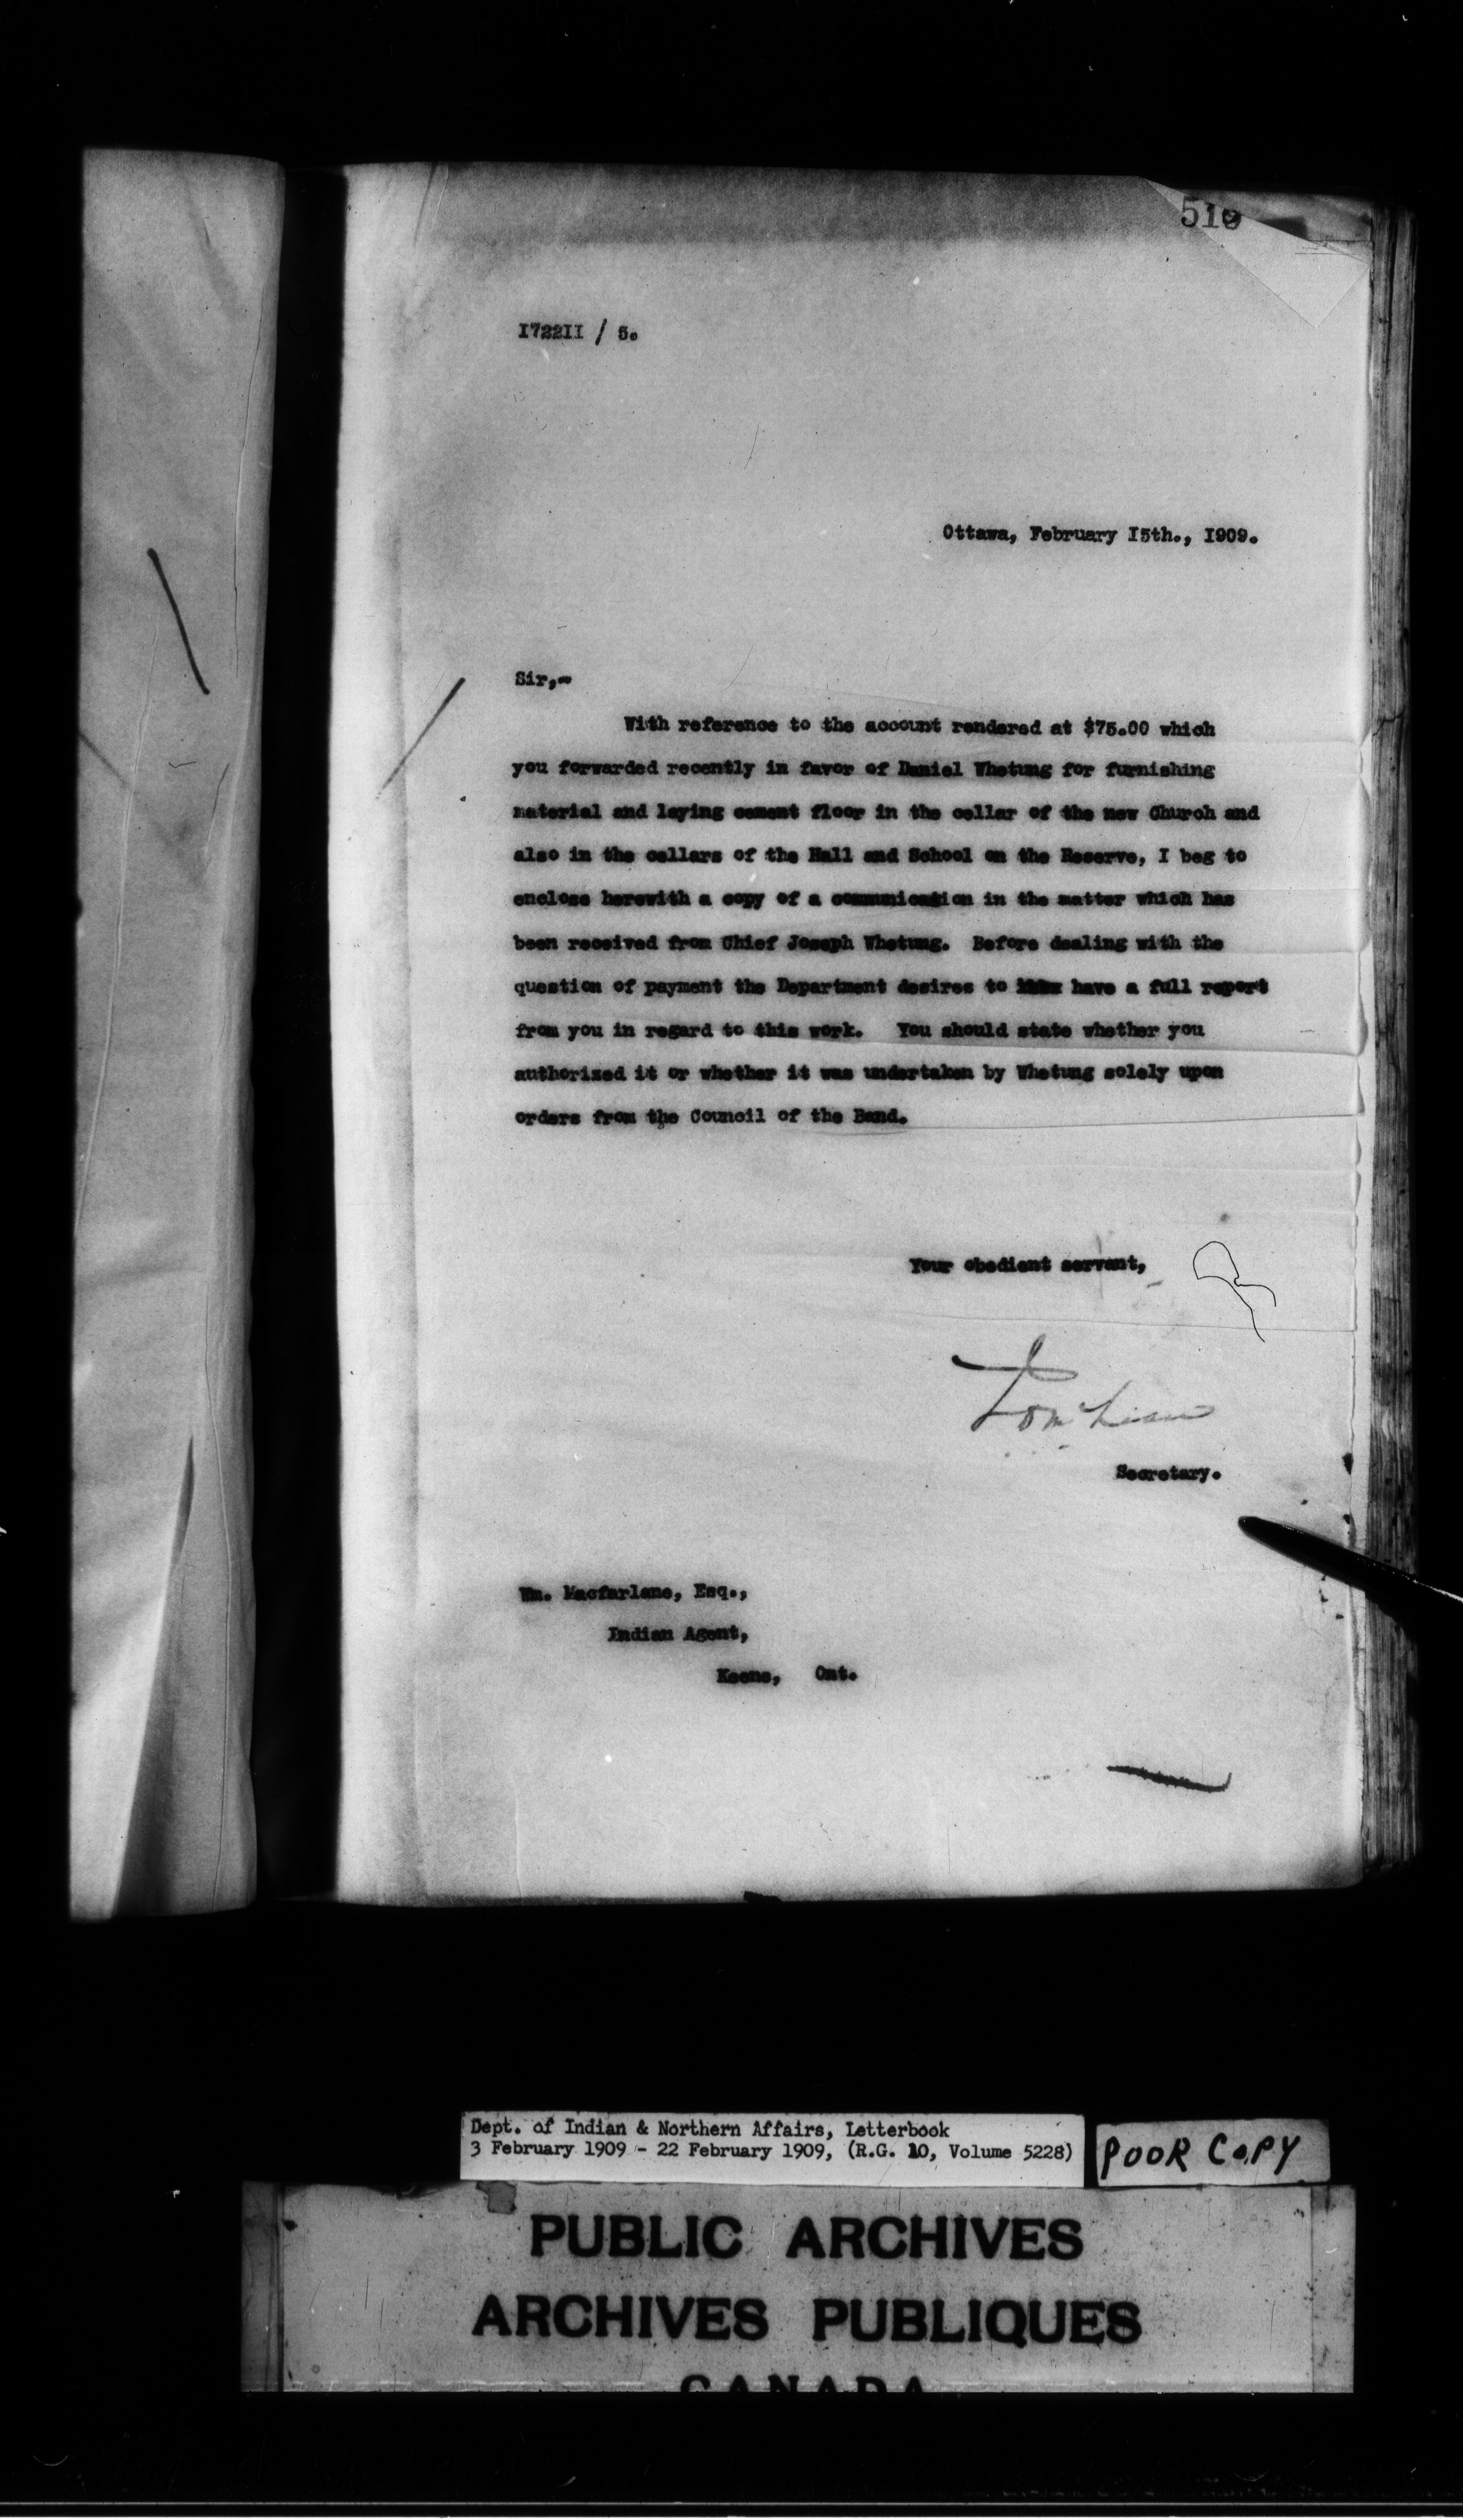 I722II / 5.
Ottawa, February I5th., I909.
Sir,-
With reference to the account rendered at $75.00 which
you forwarded recently in favor of Daniel Whetung for furnishing
material and laying cement floor in the cellar of the new Church and
also in the cellars of the Hall and School on the Reserve, I beg to
enclose herewith a copy of a communication in the matter which has
been received from Chief Joseph Whetung. Before dealing with the
question of payment the Department desires to have a full report
from you in regard to this work. You should state whether you
authorized it or whether it was undertaken by Whetung solely upon
orders from the Council of the Band.
Your obedient servant,
Secretary.
Wm. Macfarlane, Esq.,
Indian Agent,
Keene, Ont.
Dept. of Indian & Northern Affairs, Letterbook
3 February 1909 - 22 February 1909, (R.G. 10, Volume 5228)
POOR COPY
PUBLIC ARCHIVES
ARCHIVES PUBLIQUES
CANADA